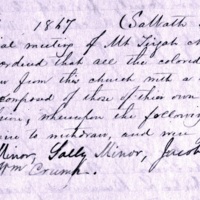 1867 (Sabbath
al meeting of Mt Tirzah
ordered that all the colored
w from this church with a
composed of those of their own
, whereupon the following
to withdraw, and were
Minor, Sally Minor, Jacob
Wm Crump.